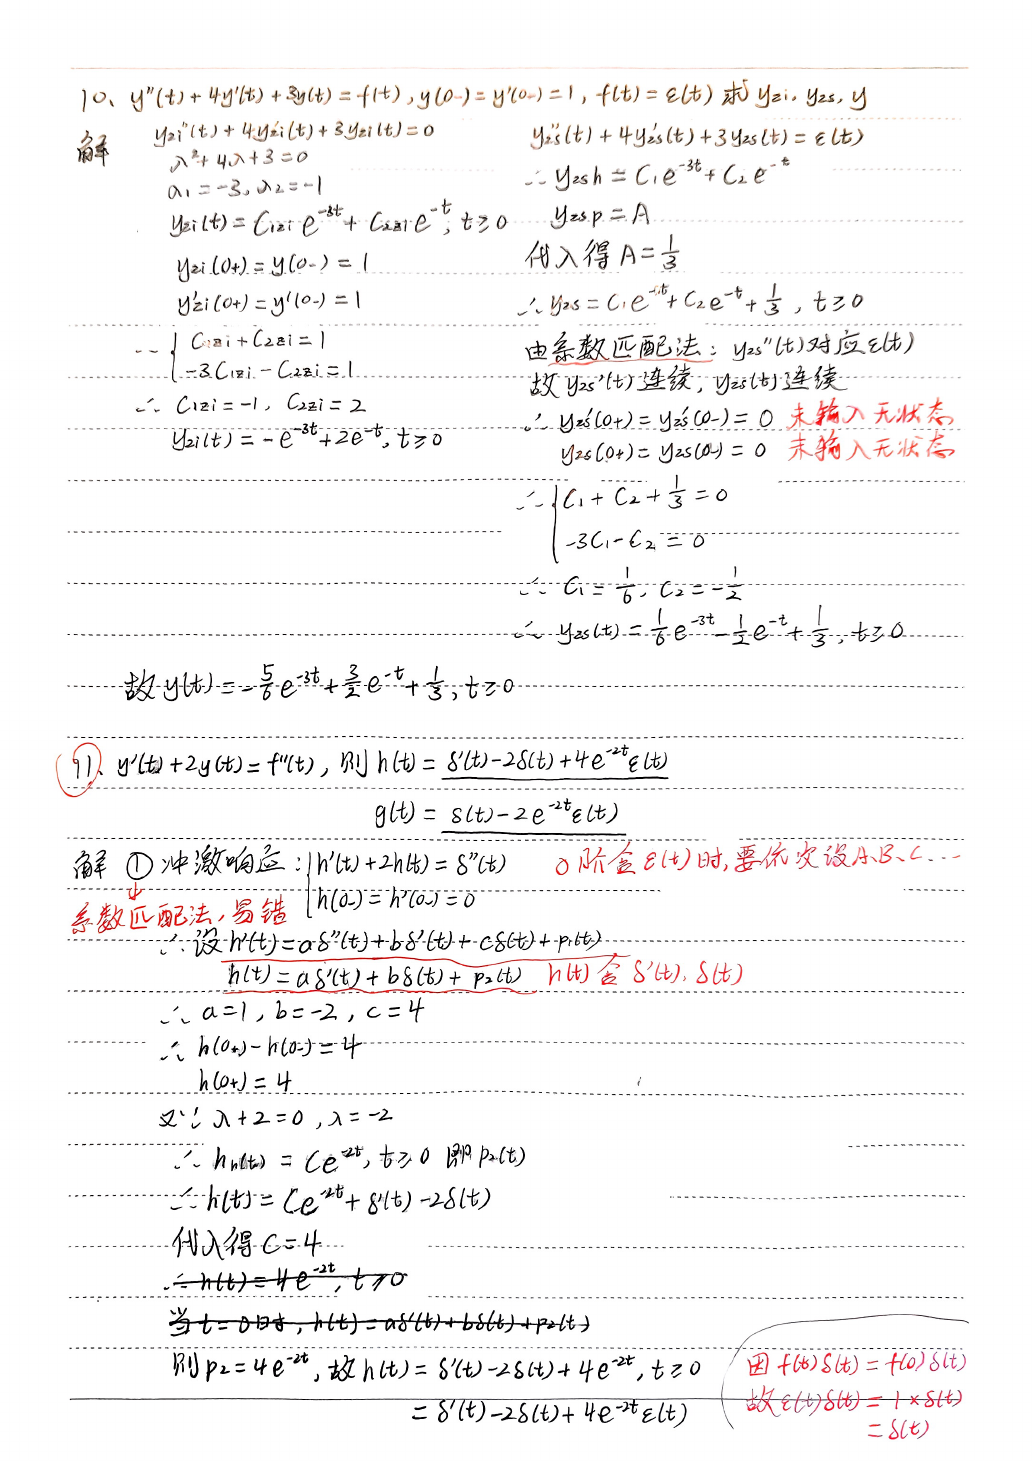 10、y''(t)+4y'(t)+3y(t)=f(t),y(0-)=y'(0-)=1,f(t)=ε(t) 求 yzi、yzs、y
解 yzi''(t)+4yzi'(t)+3yzi(t)=0
λ²+4λ+3=0
λ1=-3,λ2=-1
yzi(t)=C1zi e^-3t + C2zi e^-t, t≥0
yzi(0+)=y(0-)=1
y'zi(0+)=y'(0-)=1
∴ { C1zi+C2zi=1
-3C1zi-C2zi=1
∴ C1zi=-1, C2zi=2
yzi(t)=-e^-3t+2e^-t, t≥0
yzs''(t)+4yzs'(t)+3yzs(t)=ε(t)
∴ yzsh=C1e^-3t+C2e^-t
yzsp=A
代入得 A=1/3
∴ yzs=C1e^-3t+C2e^-t+1/3, t≥0
由系数匹配法: yzs''(t)对应ε(t)
故 yzs'(t)连续, yzs(t)连续
∴ yzs'(0+)=yzs'(0-)=0 未输入无状态
yzs(0+)=yzs(0-)=0 未输入无状态
∴ { C1+C2+1/3=0
-3C1-C2=0
∴ C1=1/6, C2=-1/2
∴ yzs(t)=1/6e^-3t-1/2e^-t+1/3, t≥0
故y(t)=-5/6e^-3t+3/2e^-t+1/3, t≥0
11、y'(t)+2y(t)=f''(t), 则h(t)=δ'(t)-2δ(t)+4e^-2tε(t)
g(t)=δ(t)-2e^-2tε(t)
解 ①冲激响应: { h'(t)+2h(t)=δ''(t) 0阶含ε(t)时,要依次设A、B、C…
h(0-)=h'(0-)=0
系数匹配法,易错
∴设h'(t)=aδ''(t)+bδ'(t)+cδ(t)+p1(t)
h(t)=aδ'(t)+bδ(t)+p2(t) h(t)含δ'(t)、δ(t)
∴ a=1, b=-2, c=4
∴ h(0+)-h(0-)=4
h(0+)=4
又∵ λ+2=0, λ=-2
∴ hh(t)=Ce^-2t, t≥0 即p2(t)
∴ h(t)=Ce^-2t+δ'(t)-2δ(t)
代入得C=4
∴ h(t)=4e^-2t, t≥0
当t=0时, h(t)=aδ'(t)+bδ(t)+p2(t)
则p2=4e^-2t, 故h(t)=δ'(t)-2δ(t)+4e^-2t, t≥0
=δ'(t)-2δ(t)+4e^-2tε(t)
因f(t)δ(t)=f(0)δ(t)
故ε(t)δ(t)=1×δ(t)
=δ(t)